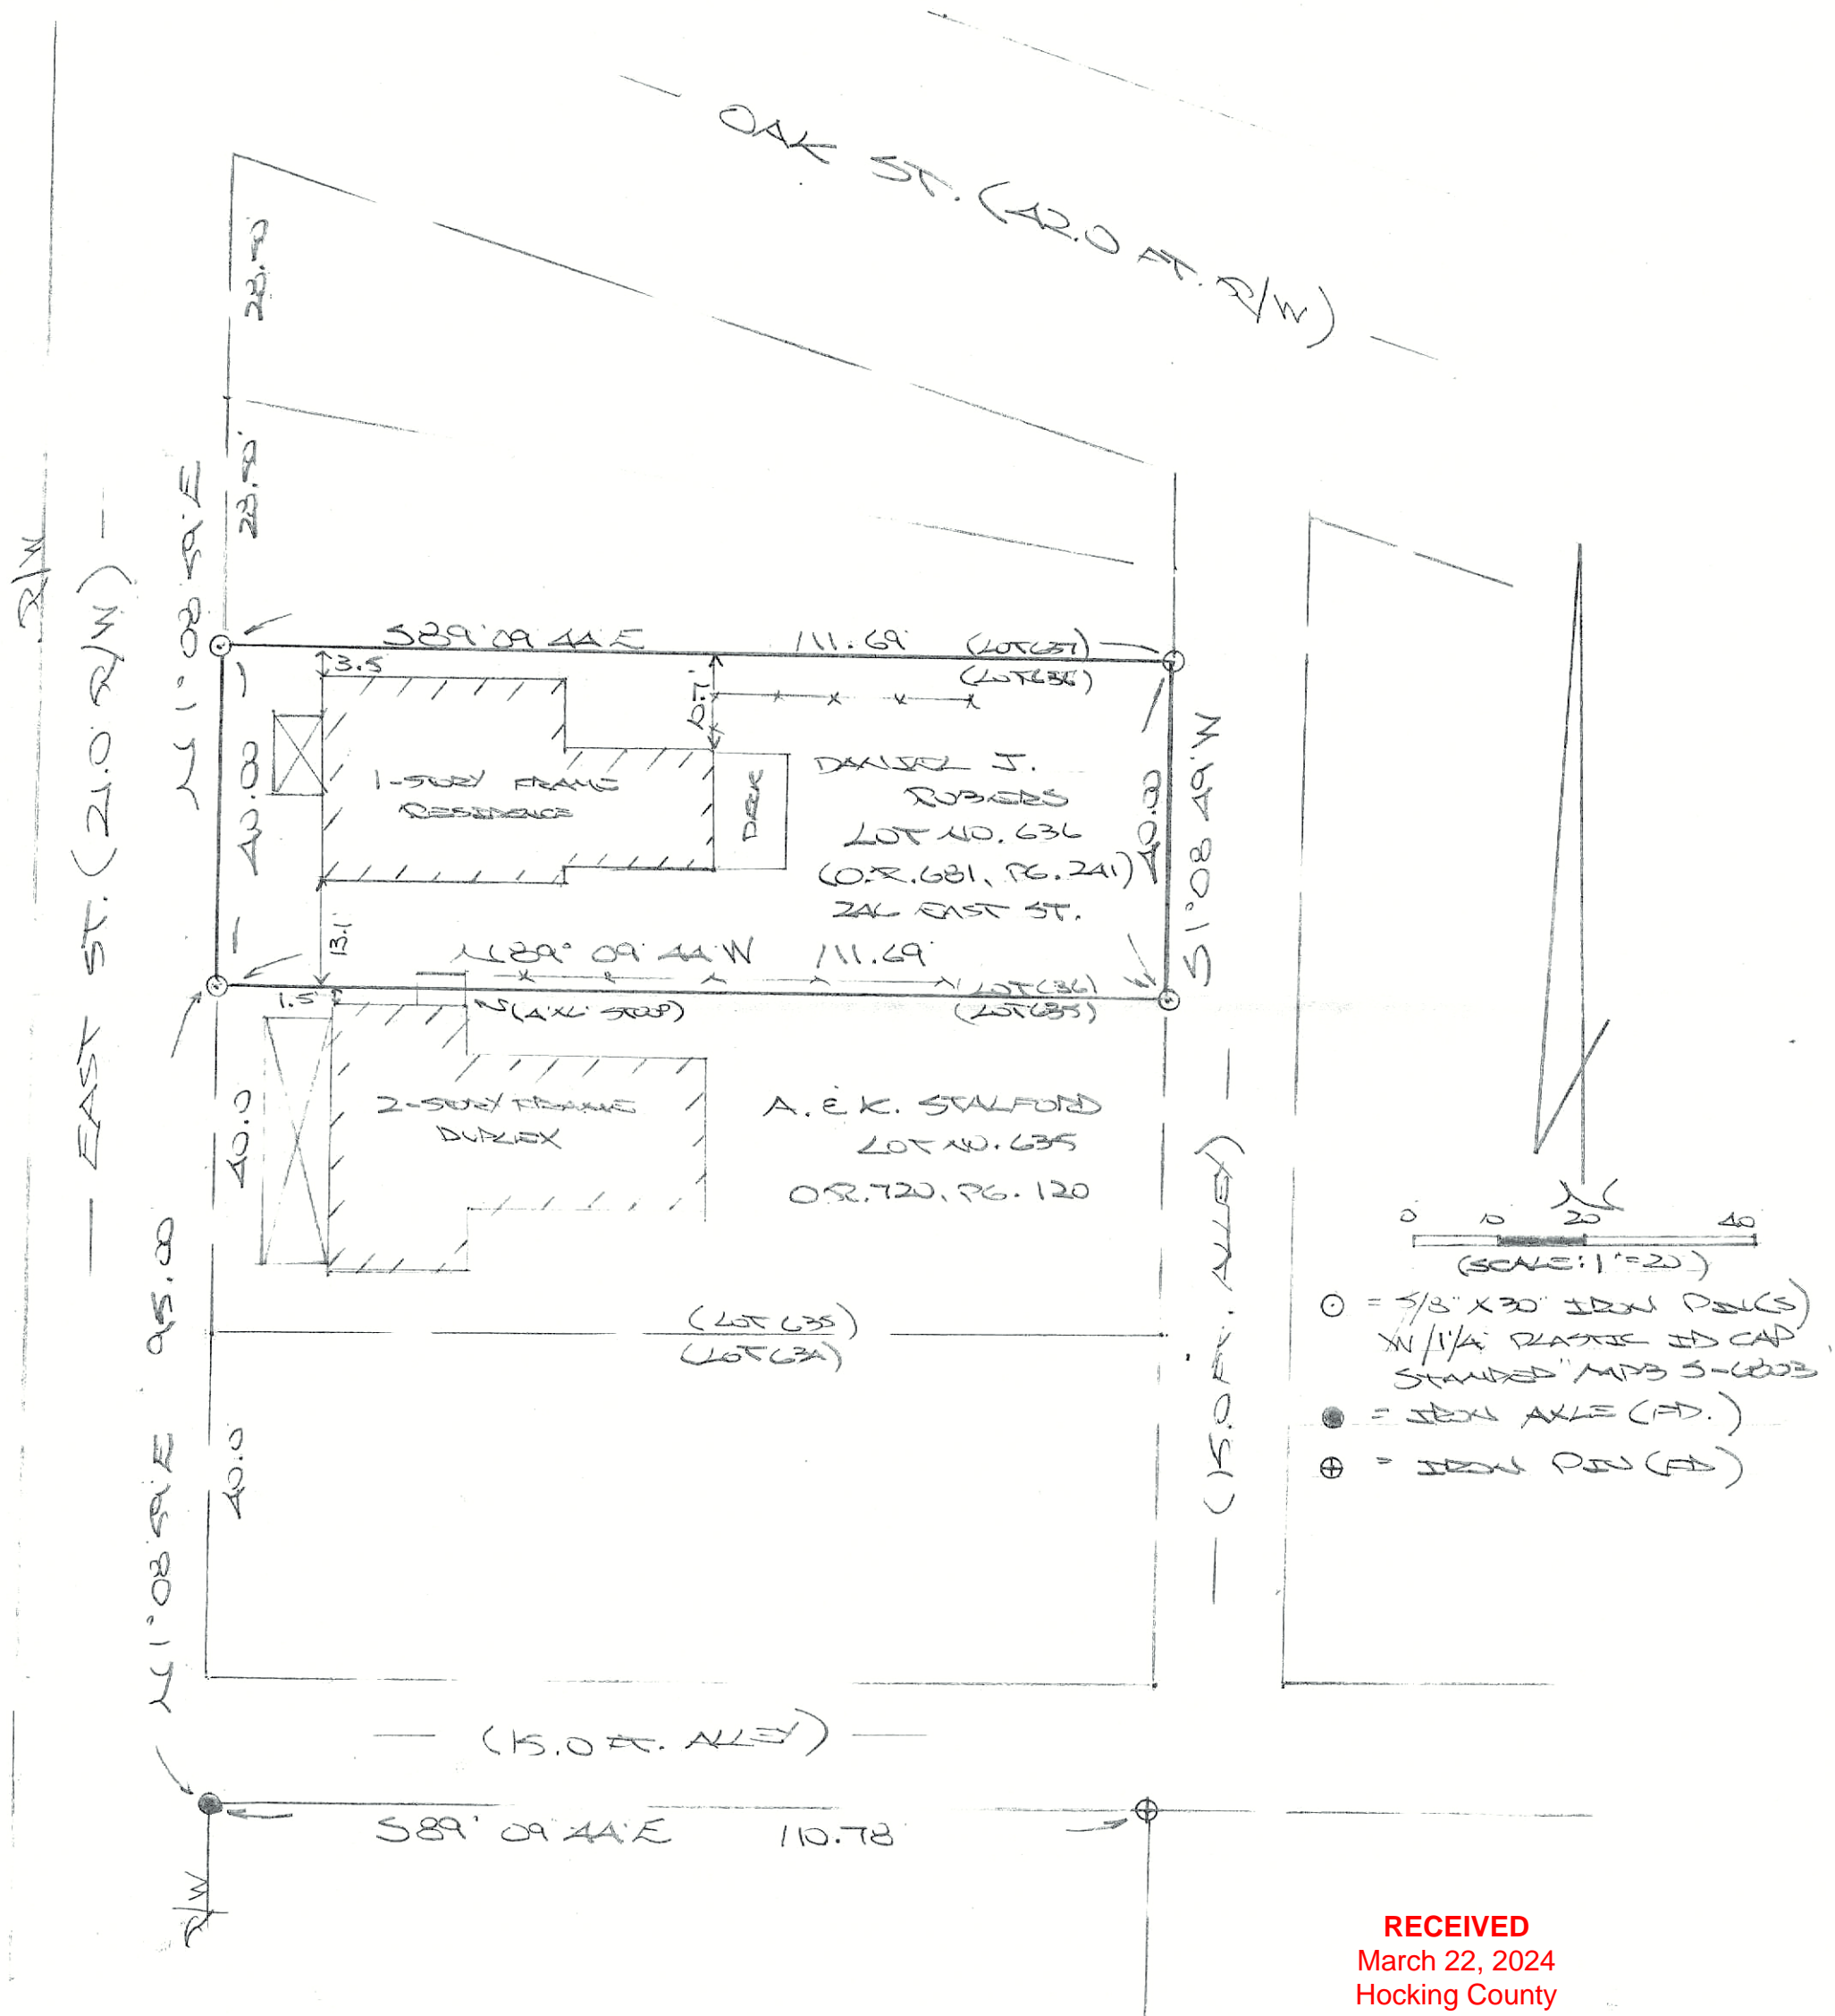 OAK ST. (42.0 FT. R/W)
R/W
EAST ST. (21.0' R/W)
S89°09'44"E 111.69' (LOT 637)
(LOT 636)
3.5
10.7'
40.00
1-STORY FRAME
RESIDENCE
DECK
DANIEL J.
LOT NO. 636
(O.R. 681, PG. 241)
246 EAST ST.
40.00
S1°08'49"W
13.1
N89°09'44"W 111.69'
(LOT 636)
(LOT 635)
1.5'
(4'X6' STOOP)
2-STORY FRAME
DUPLEX
A. & K. STALFORD
LOT NO. 635
O.R. 720, PG. 120
40.0
95.00
(LOT 635)
(LOT 634)
40.0
(15.0 FT. ALLEY)
(15.0 FT. ALLEY)
S89°09'44"E 110.78'
R/W
N
0 10 20 40
(SCALE: 1"=20')
= 5/8" X 30" IRON PIN(S)
W/ 1 1/4" PLASTIC ID CAP
STAMPED "MPB S-6803
= IRON AXLE (FD.)
= IRON PIN (FD)
RECEIVED
March 22, 2024
Hocking County